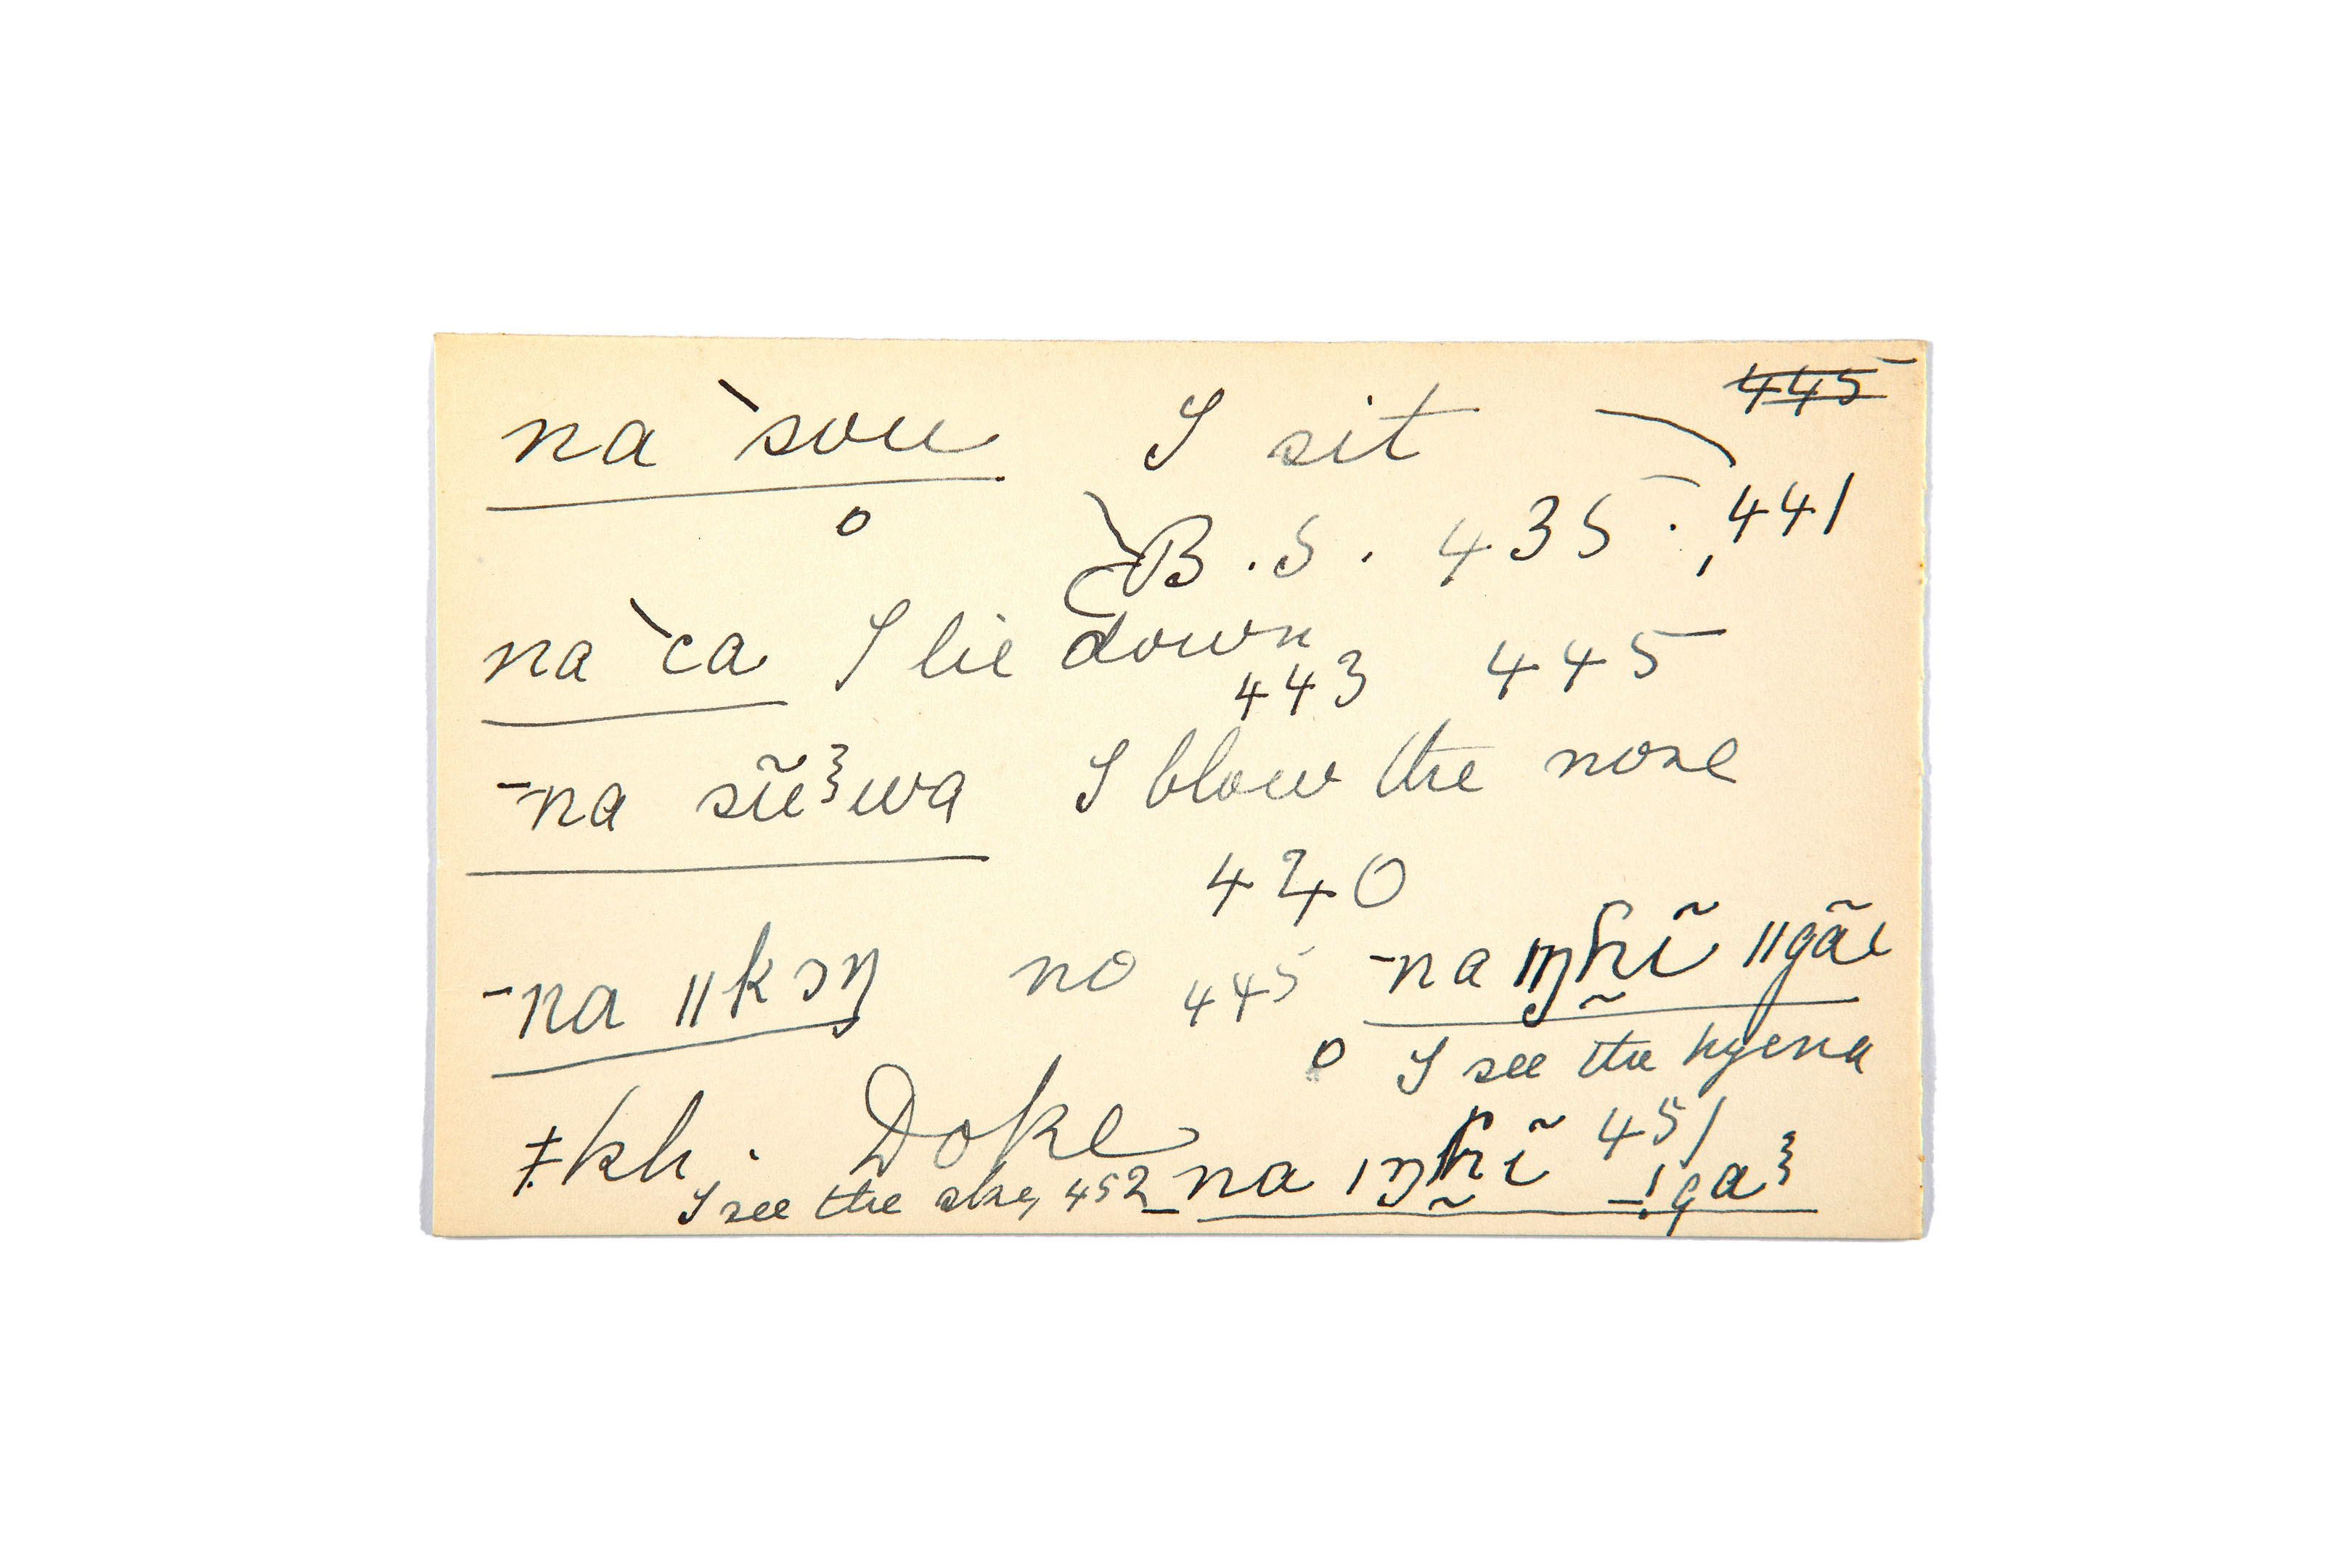 445
na ˋsou I sit
o B. S. 435. , 441
na ˋca I lie down
443 445
ˉna sũꜣwa I blow the nose
420
ˉna ǁkɔŋ no 445 ˉna ǀŋɦĩ ǁgãi
o I see the hyena
ǂkh. Doke 451
I see the sky, 452 _na ǀŋɦĩ _ǃgaꜣ